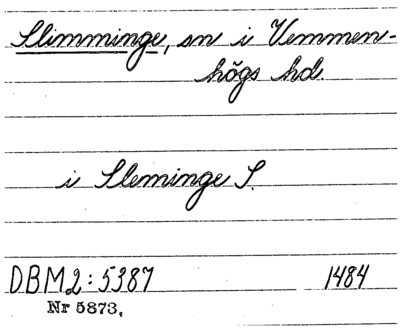 Slimminge, sn i Vemmen-
högs hd.
i Sleminge S.
DBM2:5387 1484
Nr 5873,